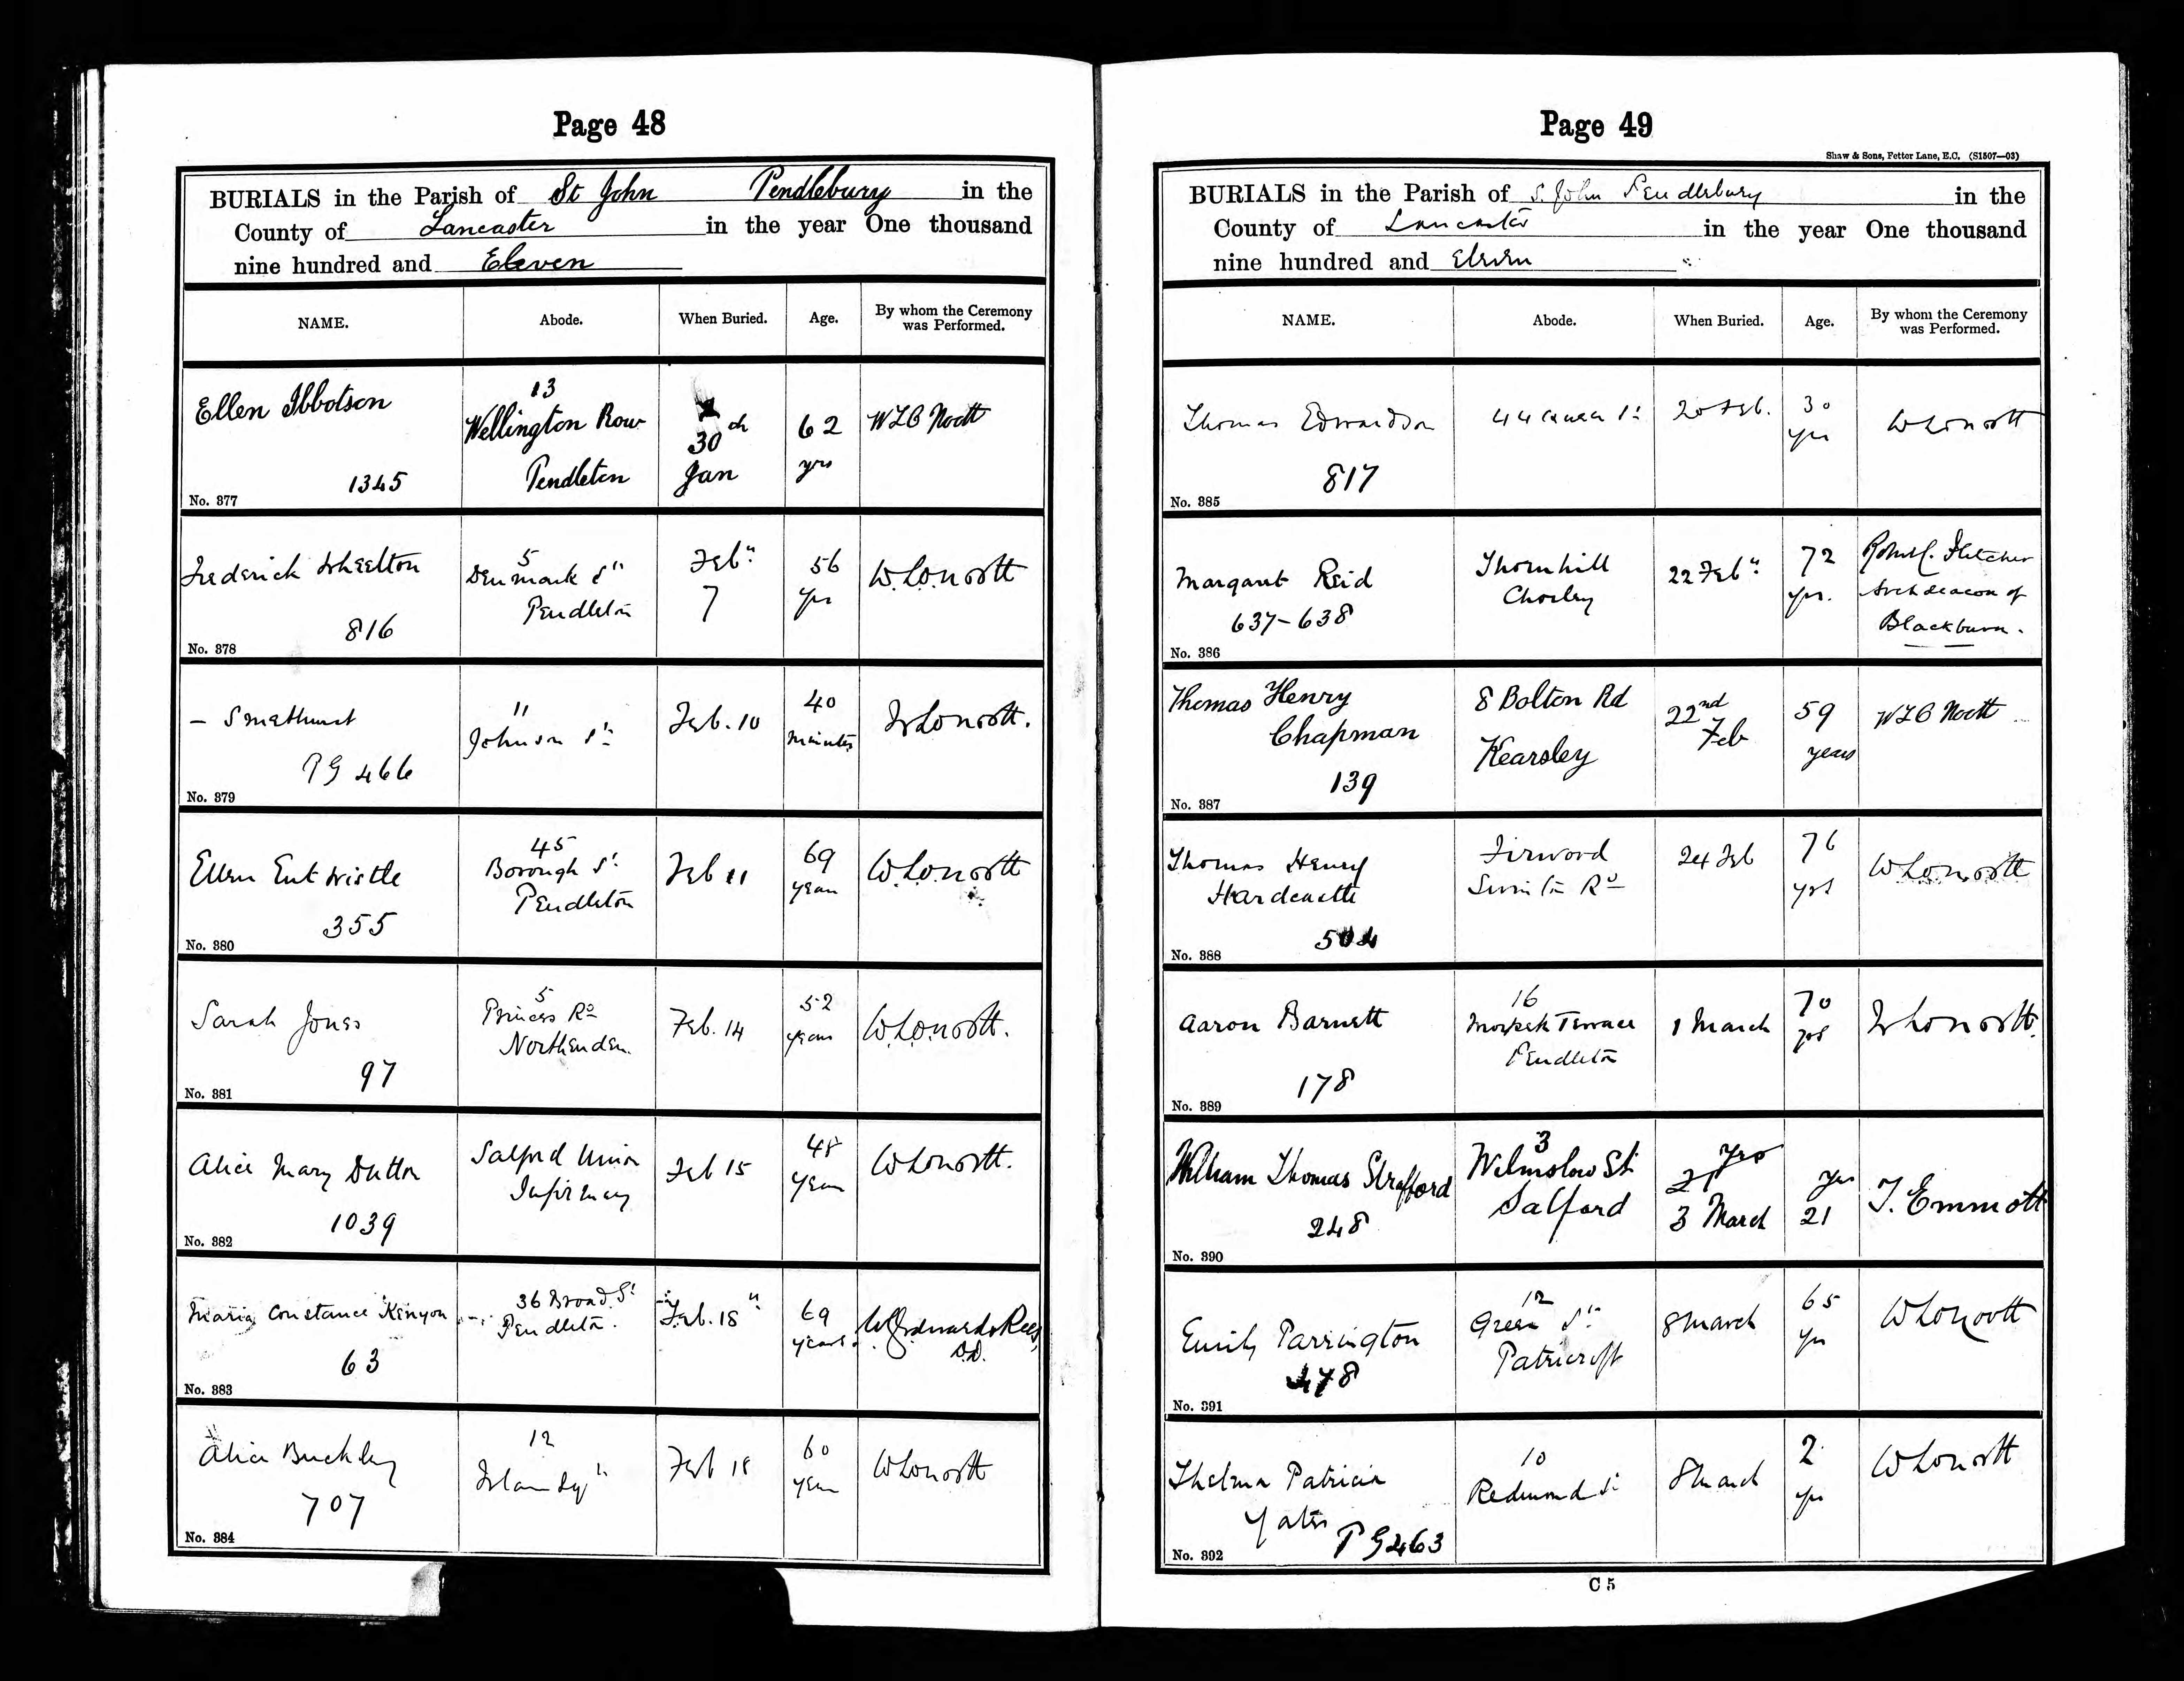 Page 48
BURIALS in the Parish of St John Pendlebury in the
County of Lancaster in the year One thousand
nine hundred and Eleven
NAME. Abode. When Buried. Age. By whom the Ceremony was Performed.
Ellen Ibbotson
1345
No. 377
13
Wellington Row
Pendleton
30th
Jan
62
yrs
Frederick Wheelton
816
No. 378
5
Denmark St
Pendleton
Feb.
7
56
yrs
— Smethurst
PG 466
No. 379
11
Johnson St
Feb. 10
40
minutes
Ellen Entwistle
355
No. 380
45
Borough St
Pendleton
Feb 11
69
years
Sarah Jones
97
No. 381
5
Princess Rd
Northenden.
Feb. 14
52
years
Alice Mary Dutton
1039
No. 382
Salford Union
Infirmary
Feb 15
48
years
Maria Constance Kenyon
63
No. 383
36 Broad St
Pendleton.
Feb. 18
69
years.
D.D.
Alice Buckley
707
No. 384
12
Feb 18
60
years
Page 49
Shaw & Sons, Fetter Lane, E.C. (S1507—03)
BURIALS in the Parish of S. John Pendlebury in the
County of Lancaster in the year One thousand
nine hundred and Eleven
NAME. Abode. When Buried. Age. By whom the Ceremony was Performed.
Thomas Edwardson
817
No. 385
44 Queen St
20 Feb.
30
yrs
Margaret Reid
637-638
No. 386
Thornhill
Chorley
22 Feb
72
yrs.
Fletcher
Archdeacon of
Blackburn.
Thomas Henry
Chapman
139
No. 387
8 Bolton Rd
Kearsley
22nd
Feb
59
years
Thomas Henry
Hardcastle
504
No. 388
Firwood
Swinton Rd
24 Feb
76
yrs
Aaron Barnett
178
No. 389
16
Terrace
Pendleton
1 March
70
yrs
William Thomas Strafford
248
No. 390
3
Wilmslow St
Salford
3 March
yrs
21
T. Emmott
Emily Partington
478
No. 391
12
Green St
Patricroft
8 March
65
yrs
Thelma Patricia
Yates
PG 463
No. 392
10
Redmond St
8 March
2
yrs
C 5